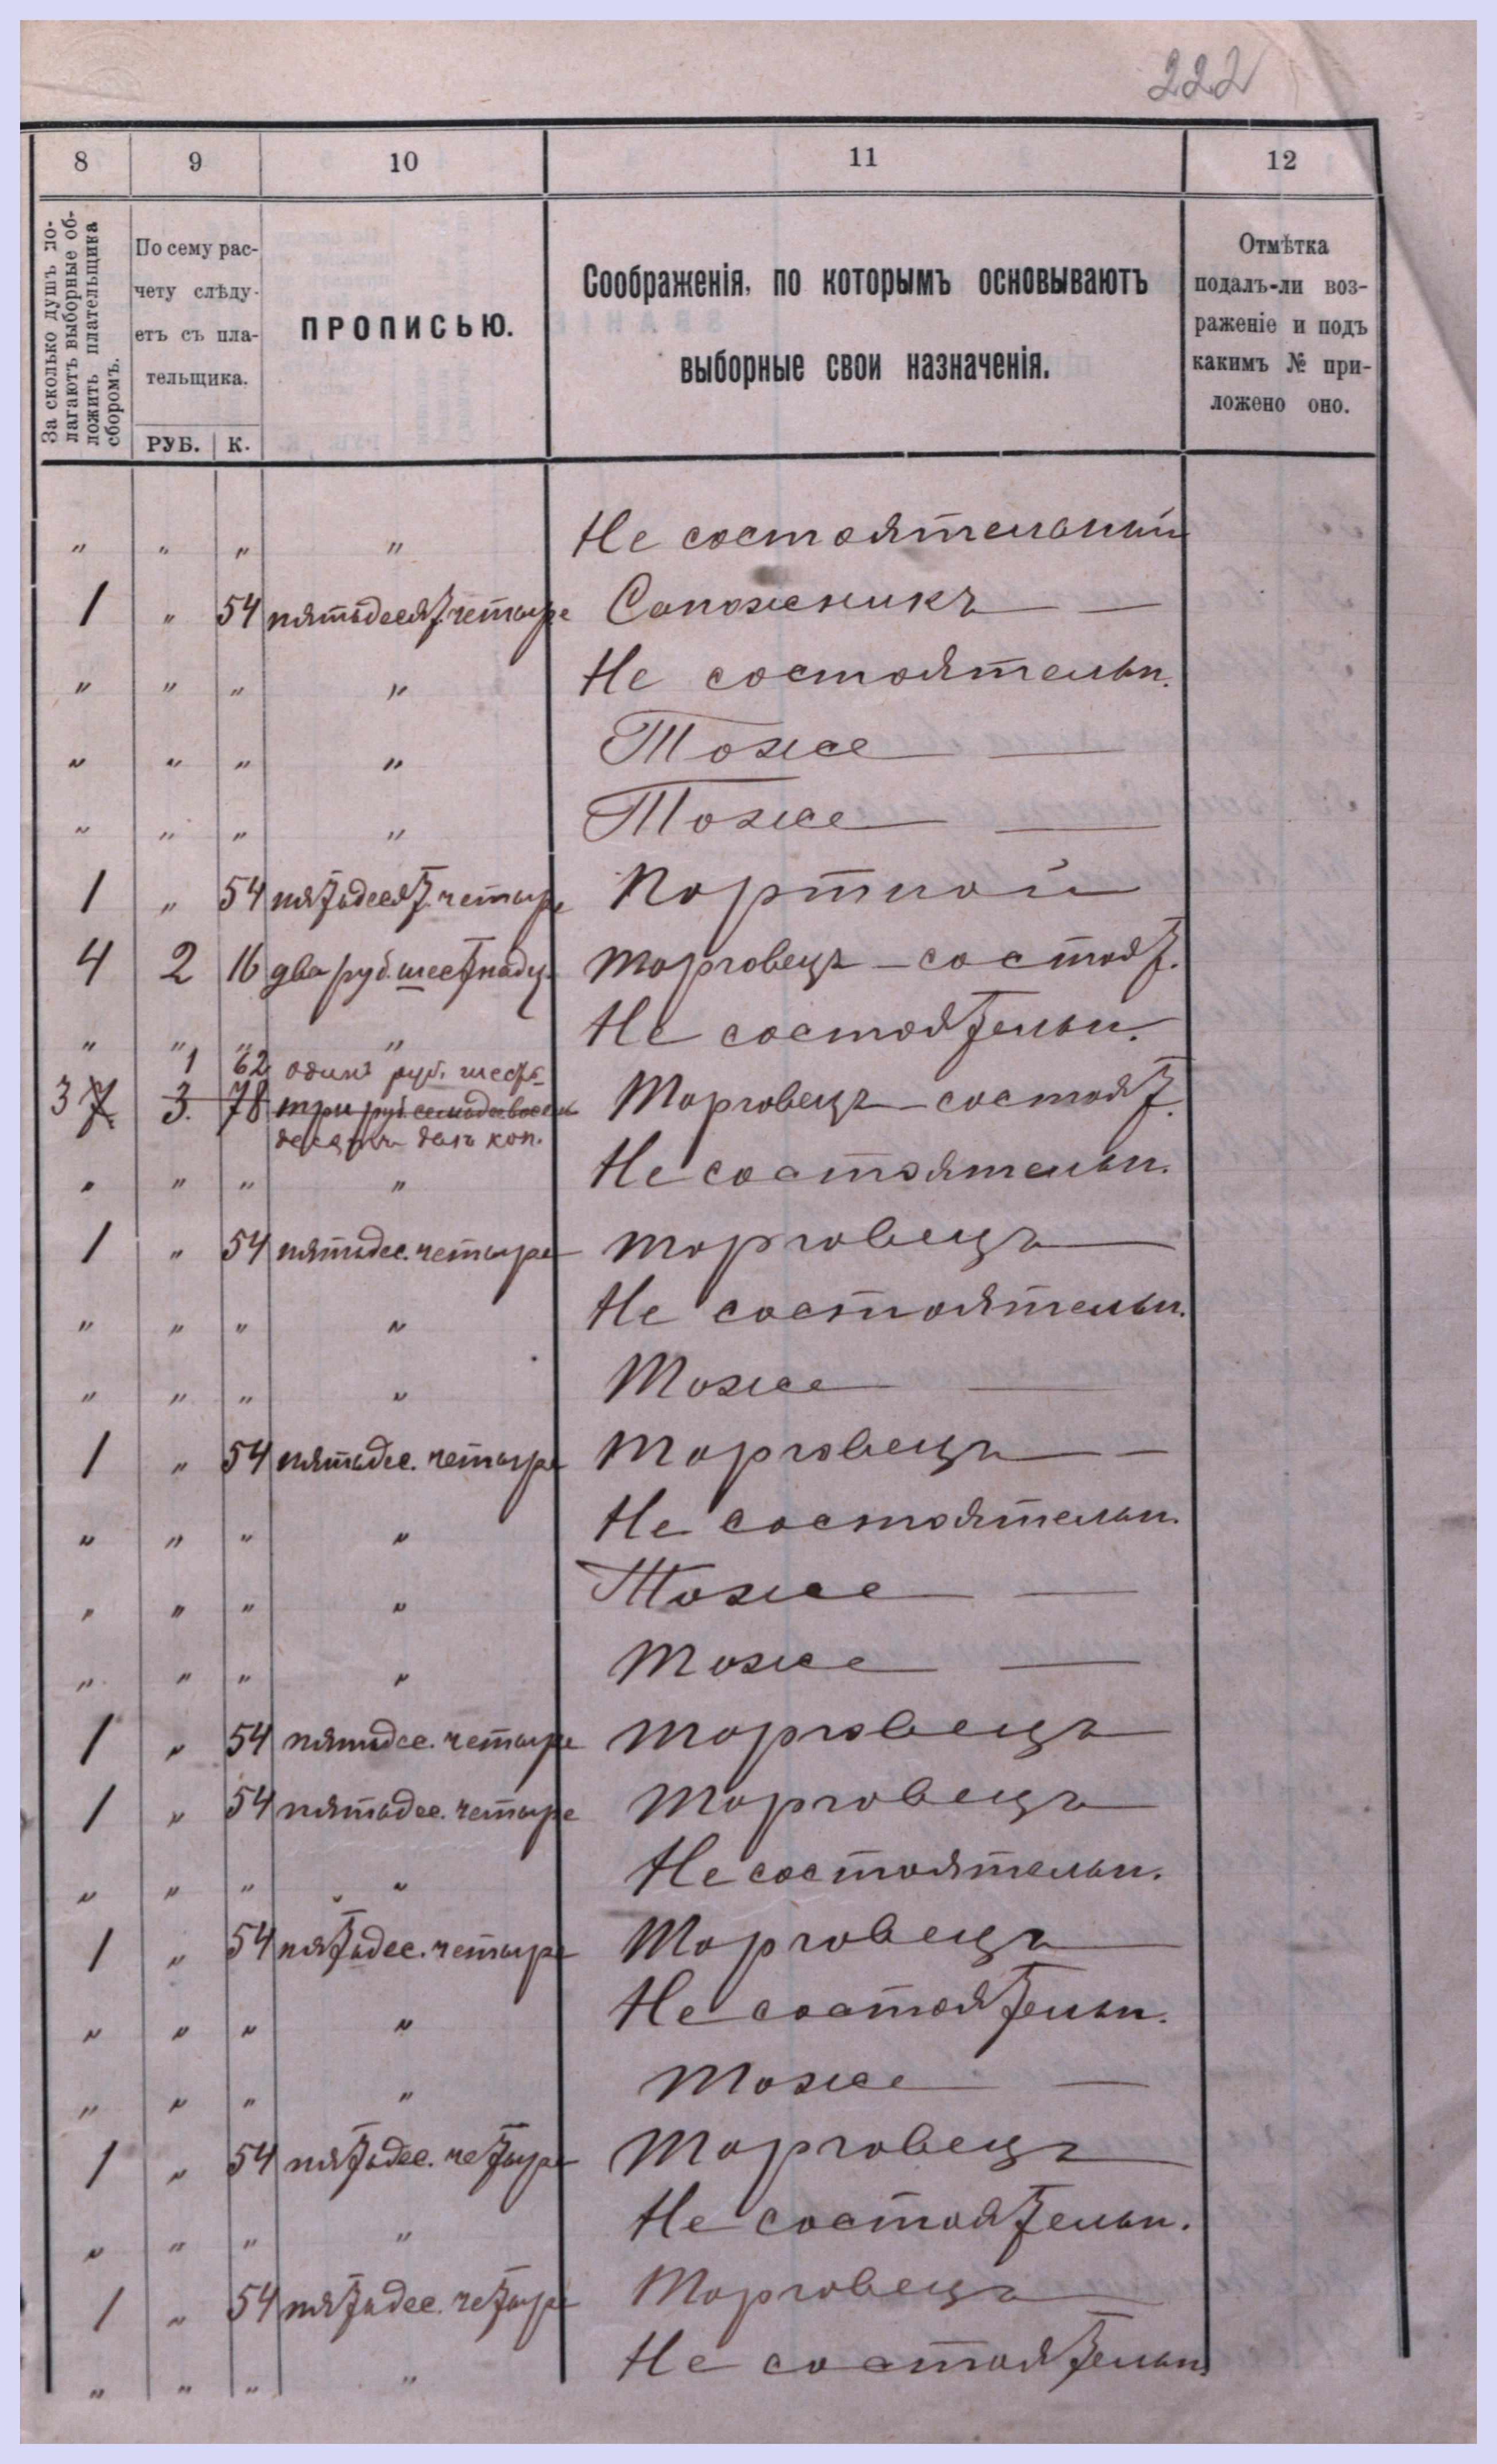 222
8 9 10 11 12
За сколько душъ по-
лагаютъ выборные об-
ложить плательщика
сборомъ.
По сему рас-
чету слѣду-
етъ съ пла-
тельщика.
РУБ. К.
ПРОПИСЬЮ.
Соображенія, по которымъ основываютъ
выборные свои назначенія.
Отмѣтка
подалъ-ли воз-
раженіе и подъ
какимъ № при-
ложено оно.
" " " " Не состоятельный
1 " 54 пятьдесят четыре Сапожникъ —
" " " " Не состоятельн.
" " " " Тоже —
" " " " Тоже —
1 " 54 пятьдесят четыре Портной
4 2 16 два руб. шестнадц. торговецъ – состоят.
" " " " Не состоятельн.
1 62 один руб. шесть-
3 7 3. 78 три руб семьдес восем Торговецъ – состоят.
десятъ два коп.
" " " " Не состоятельн.
1 " 54 пятьдес. четыре торговецъ
" " " " Не состоятельн.
" " " " Тоже —
1 " 54 пятьдес. четыре торговецъ —
" " " " Не состоятельн.
" " " " Тоже —
" " " " Тоже —
1 " 54 пятьдес. четыре торговецъ
1 " 54 пятьдес. четыре Торговецъ
" " " " Не состоятельн.
1 " 54 пятьдес. четыре Торговецъ
" " " " Не состоятельн.
" " " " Тоже —
1 " 54 пятьдес. четыре Торговецъ
" " " " Не состоятельн.
1 " 54 пятьдес. четыре Торговецъ
" " " " Не состоятельн.